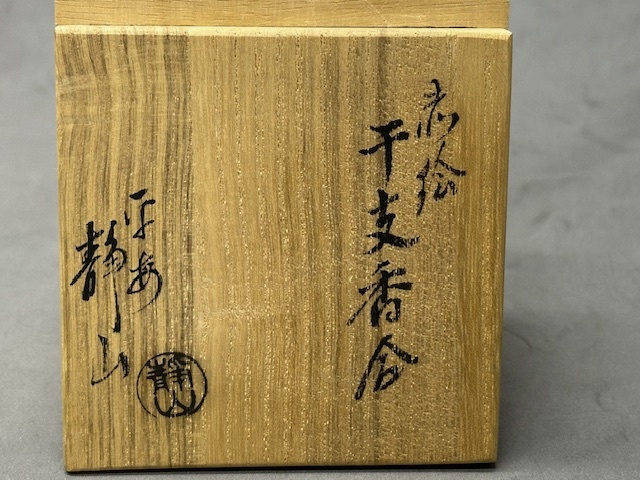 赤絵
干支香合
平安
靜山
靜山